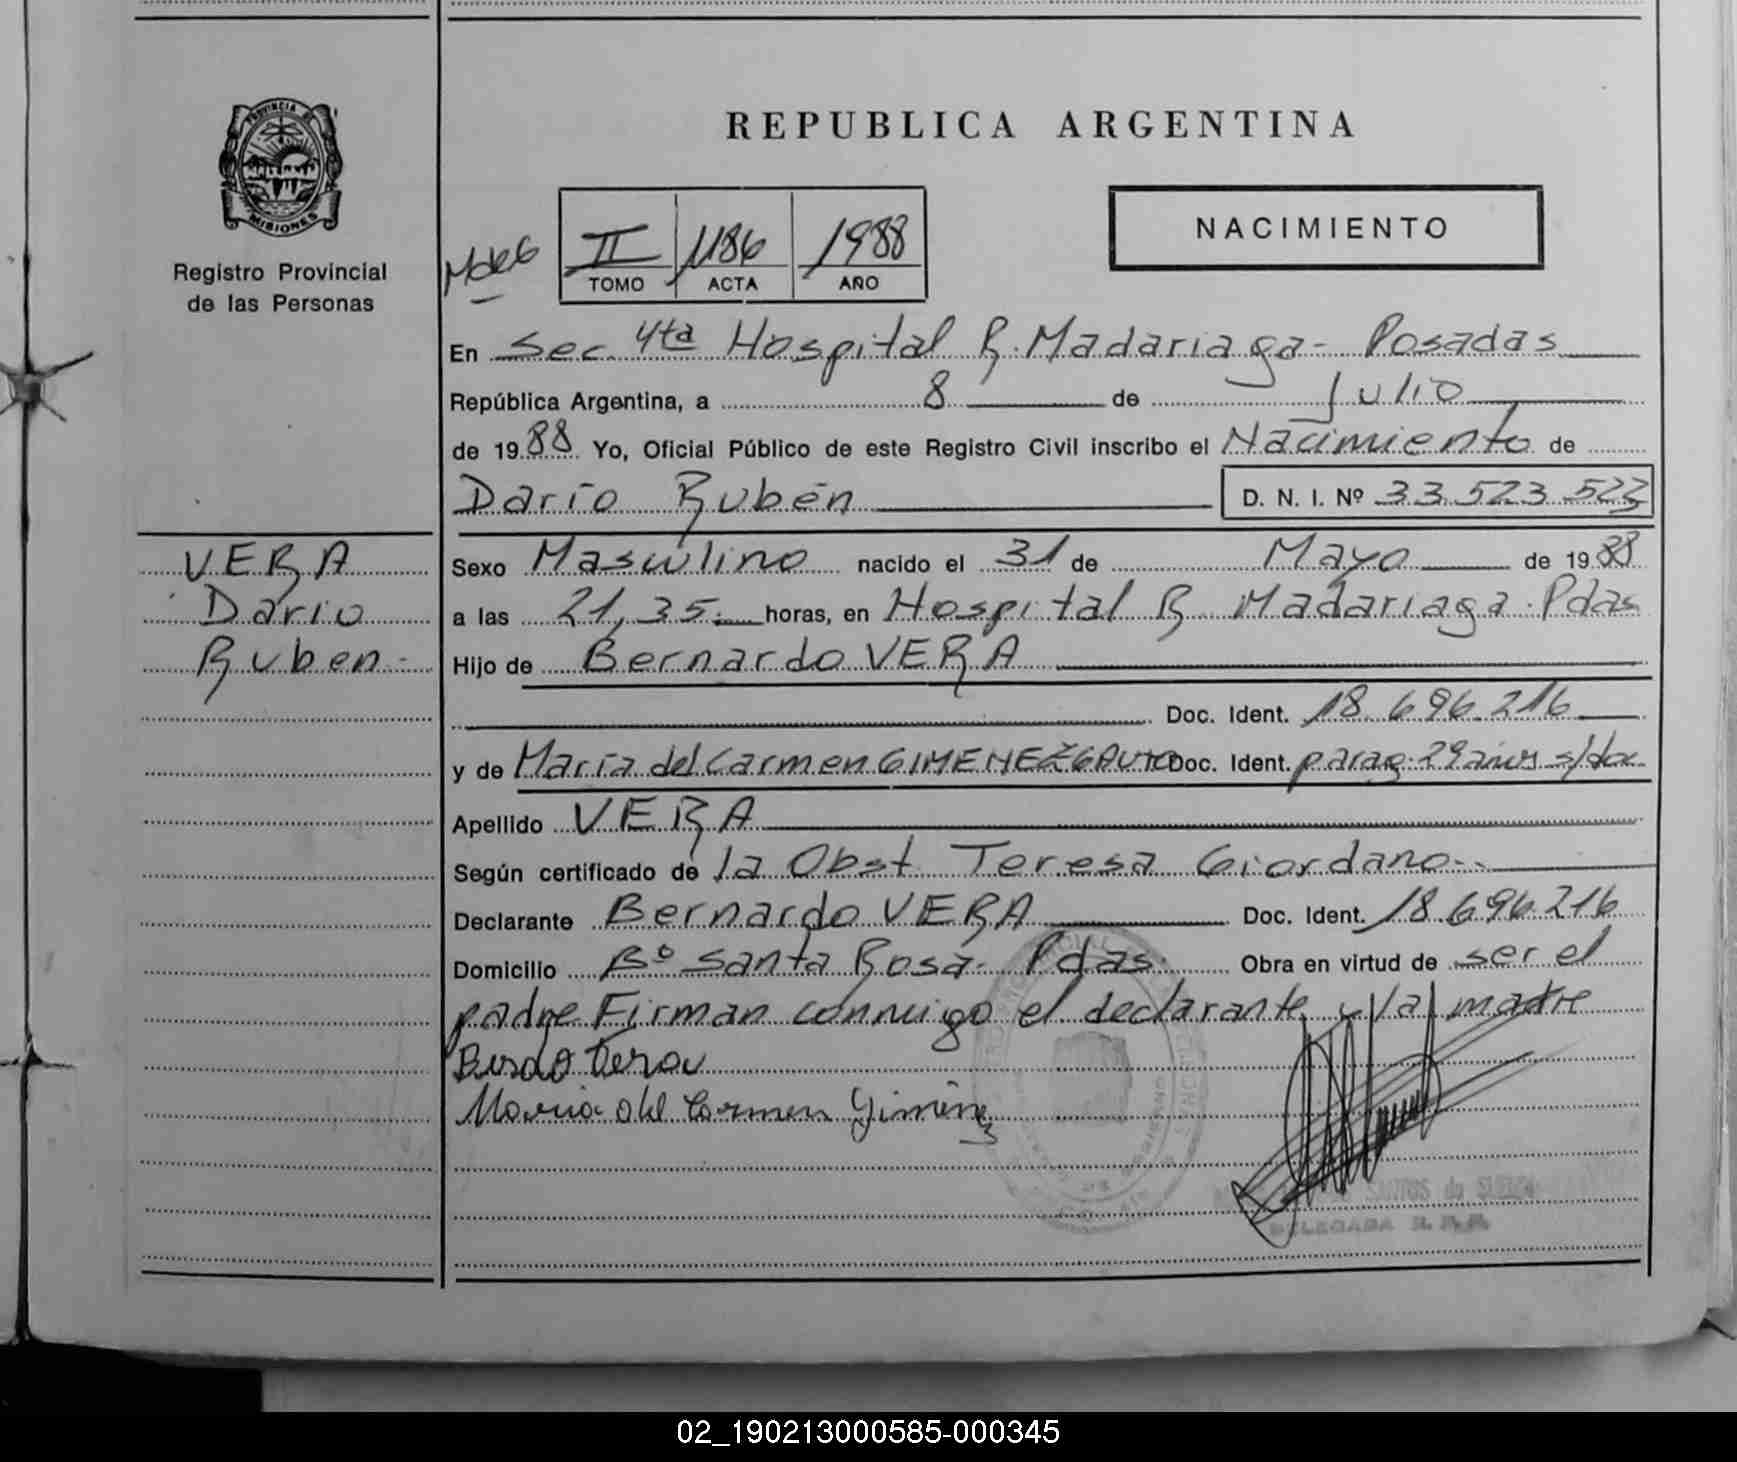 REPUBLICA ARGENTINA
PROVINCIA DE
MISIONES
Registro Provincial
de las Personas
II 1186 1988
TOMO ACTA AÑO
NACIMIENTO
En Sec. 4ta Hospital R. Madariaga- Posadas
República Argentina, a 8 de Julio
de 1988 Yo, Oficial Público de este Registro Civil inscribo el Nacimiento de
Darío Rubén D. N. I. Nº 33.523.523
VERA
Darío
Ruben-
Sexo Masculino nacido el 31 de Mayo de 1988
a las 21,35. horas, en Hospital R. Madariaga. Pdas
Hijo de Bernardo VERA
Doc. Ident. 18.696.216
y de María del Carmen GIMENEZ GAUTO Doc. Ident. parag. 29 años s/doc
Apellido VERA
Según certificado de la Obst. Teresa Giordano--
Declarante Bernardo VERA Doc. Ident. 18.696.216
Domicilio Bº Santa Rosa- Pdas. Obra en virtud de ser el
padre Firman conmigo el declarante y la madre
Maria del Carmen Gimenez
SANTOS de
DELEGADA R. P. P.
02_190213000585-000345